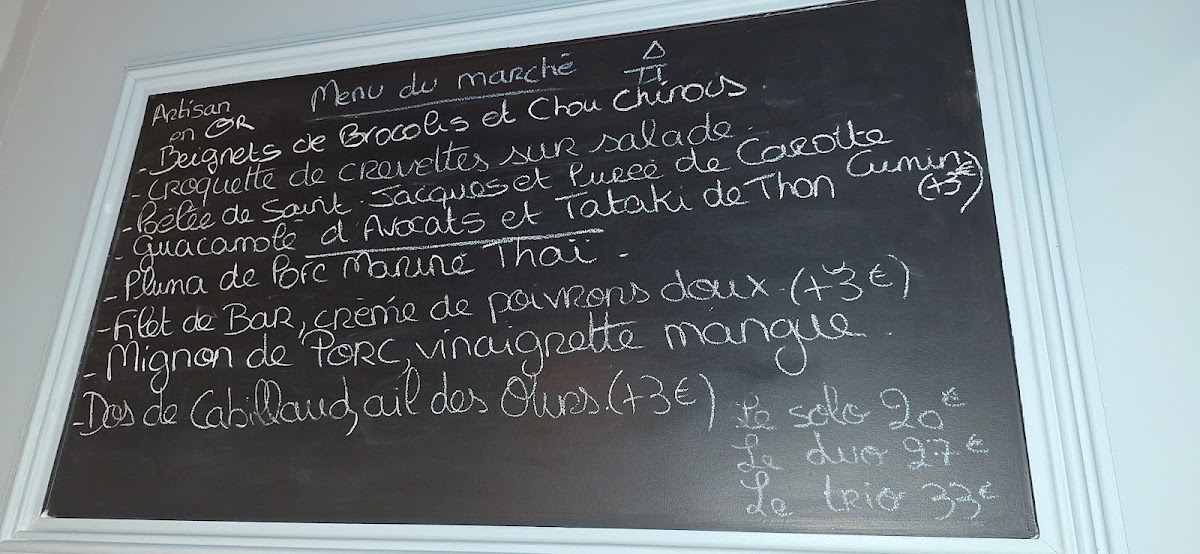 Menu du marché
Artisan
en OR
- Beignets de Brocolis et Chou Chinois.
- Croquette de crevettes sur salade.
- Poêlée de Saint-Jacques et Purée de Carotte Cumin (+3€)
- Guacamole d'Avocats et Tataki de Thon
- Pluma de Porc Mariné Thaï.
- Filet de Bar, crème de poivrons doux. (+3€)
- Mignon de Porc, vinaigrette mangue.
- Dos de Cabillaud, ail des Ours. (+3€)
Le solo 20€
Le duo 27€
Le trio 33€